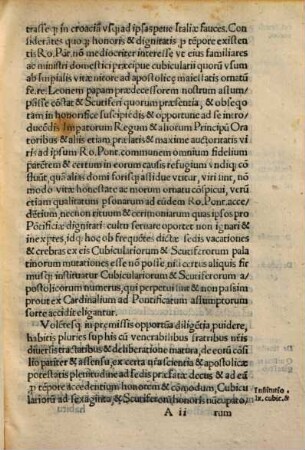 trasse q; in croaciā vsq; ad ipsas pene Italiæ fauces. Con
siderātes quoq; honoris & dignitatis p tēpore existen
tis Ro. Pōt. nō mediocriter interesse vt eius familiares
ac ministri domestici præcipue cubicularii quorū vsum
ab humilis vitæ nitore ad apostolicæ maiestatis ornatū
fe. re. Leonem papam prædecessorem nostrum assum-
psisse cōstat & Scutiferi quorum præsentia, & obseq
tam in honorifice suscipiēdis & opportune ad se intro
ducēdis Impatorum Regum & aliorum Principū Ora
toribus & aliis etiam prælatis & maxime auctoritatis vi
ris ad ipsum Ro. Pont. communem omnium fidelium
patrem & certum in eorum causis refugium vndiq; cō
fluunt, quā aliis domi forisq; assidue vtitur, viri sint, nō
modo vitæ honestate ac morum ornatu cōspicui, verū
etiam qualitatum psonarum ad eūdem Ro. Pont. acce
dētium, necnon rituum & cerimoniarum quas ipsos pro
Pōtificiæ dignitatis cultu seruare oportet non ignari &
inexpres, idq; hoc ob frequētes dictæ sedis vacationes
& crebras ex eis Cubiculariorum & Scutiferorum pala
tinorum mutationes esse nō possit nisi certus aliquis fir
musq; instituatur Cubiculariorum & Scutiferorum a-
postolicorum numerus, qui perpetui sint & non passim
prout ex Cardinalium ad Pontificatum assumptorum
sorte acciderit eligantur.
Volētesq; in premissis opportūa diligētia puidere,
habitis pluries sup his cū venerabilibus fratribus nr̄is
diuersis tractatibus & deliberatione matura, de eorū cōsi
lio pariter & assensu, ex certa nr̄a scientia & apostolicæ
potestatis plenitudine ad Sedis præfatæ decus & ad eā
p tēpore accedentium honorem & cōmodum, Cubicu
lariorū ad sexaginta, & Scutiferorū honoris nūcupato,
Institutio
lx. cubic. &
A ii
rum